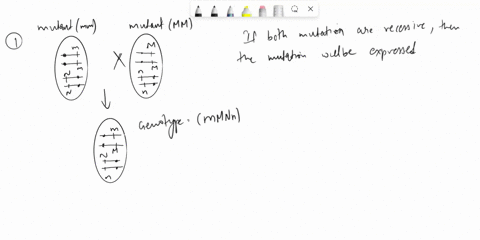 mutant (mm) mutant (MM)
If both mutation are recessive, then
the mutation will be expressed
①
X
Genotype. (mMNn)